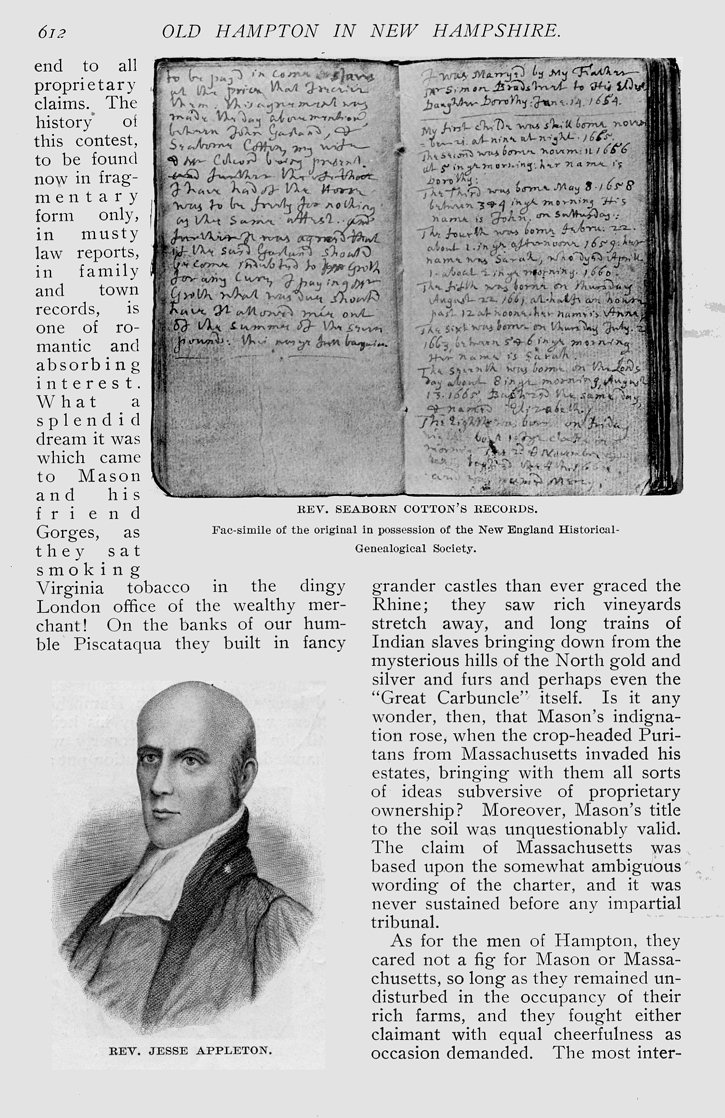 612 OLD HAMPTON IN NEW HAMPSHIRE.
end to all
proprietary
claims. The
history of
this contest,
to be found
now in frag-
mentary
form only,
in musty
law reports,
in family
and town
records, is
one of ro-
mantic and
absorbing
interest.
What a
splendid
dream it was
which came
to Mason
and his
friend
Gorges, as
they sat
smoking
Virginia tobacco in the dingy
London office of the wealthy mer-
chant! On the banks of our hum-
ble Piscataqua they built in fancy
to be payd in corne
at the price that
them. this agreement was
made the day above mention
between John Garland, &
Seaborne Cotton, my wife
& Mr
and further
I have had of the
was to be for nothing
as the same attest. and
further it was agreed that
if the said Garland should
Groth
for any I paying Mr
Groth what was due should
have it allowed mee out
of the summe of the seven
pounds. this
I was Marryed by My Father
Mr Simon Bradstreet to His Eldest
Daughter Dorothy. June. 14. 1654.
My first childe was still borne
at nine at night. 1655.
The second was borne 11 1656
at 5 in ye morning: her name is
Dorothy.
The third was borne May 8. 1658
between 3 & 4 in ye morning His
name is John, on
The fourth was borne febru. 22.
about 1. in ye afternoone 1659. her
name was Sarah, who dyed
1. about 2 in ye morning. 1660.
The fifth was borne on thursday
August 22 1661, at halfe an houre
past 12 at noone. her name is Anne
The sixt was borne on thursday July. 2
1663. between 5 & 6 in ye morning
Her name is Sarah.
The seventh was borne on the Lords
day about 8 in ye morning, August
13. 1665. the same day
& named Elizabeth.
The eighth was borne on friday
night
morning the 2d of November
the 4th
and named Mercy.
REV. SEABORN COTTON'S RECORDS.
Fac-simile of the original in possession of the New England Historical-
Genealogical Society.
REV. JESSE APPLETON.
grander castles than ever graced the
Rhine; they saw rich vineyards
stretch away, and long trains of
Indian slaves bringing down from the
mysterious hills of the North gold and
silver and furs and perhaps even the
"Great Carbuncle" itself. Is it any
wonder, then, that Mason's indigna-
tion rose, when the crop-headed Puri-
tans from Massachusetts invaded his
estates, bringing with them all sorts
of ideas subversive of proprietary
ownership? Moreover, Mason's title
to the soil was unquestionably valid.
The claim of Massachusetts was
based upon the somewhat ambiguous
wording of the charter, and it was
never sustained before any impartial
tribunal.
As for the men of Hampton, they
cared not a fig for Mason or Massa-
chusetts, so long as they remained un-
disturbed in the occupancy of their
rich farms, and they fought either
claimant with equal cheerfulness as
occasion demanded. The most inter-